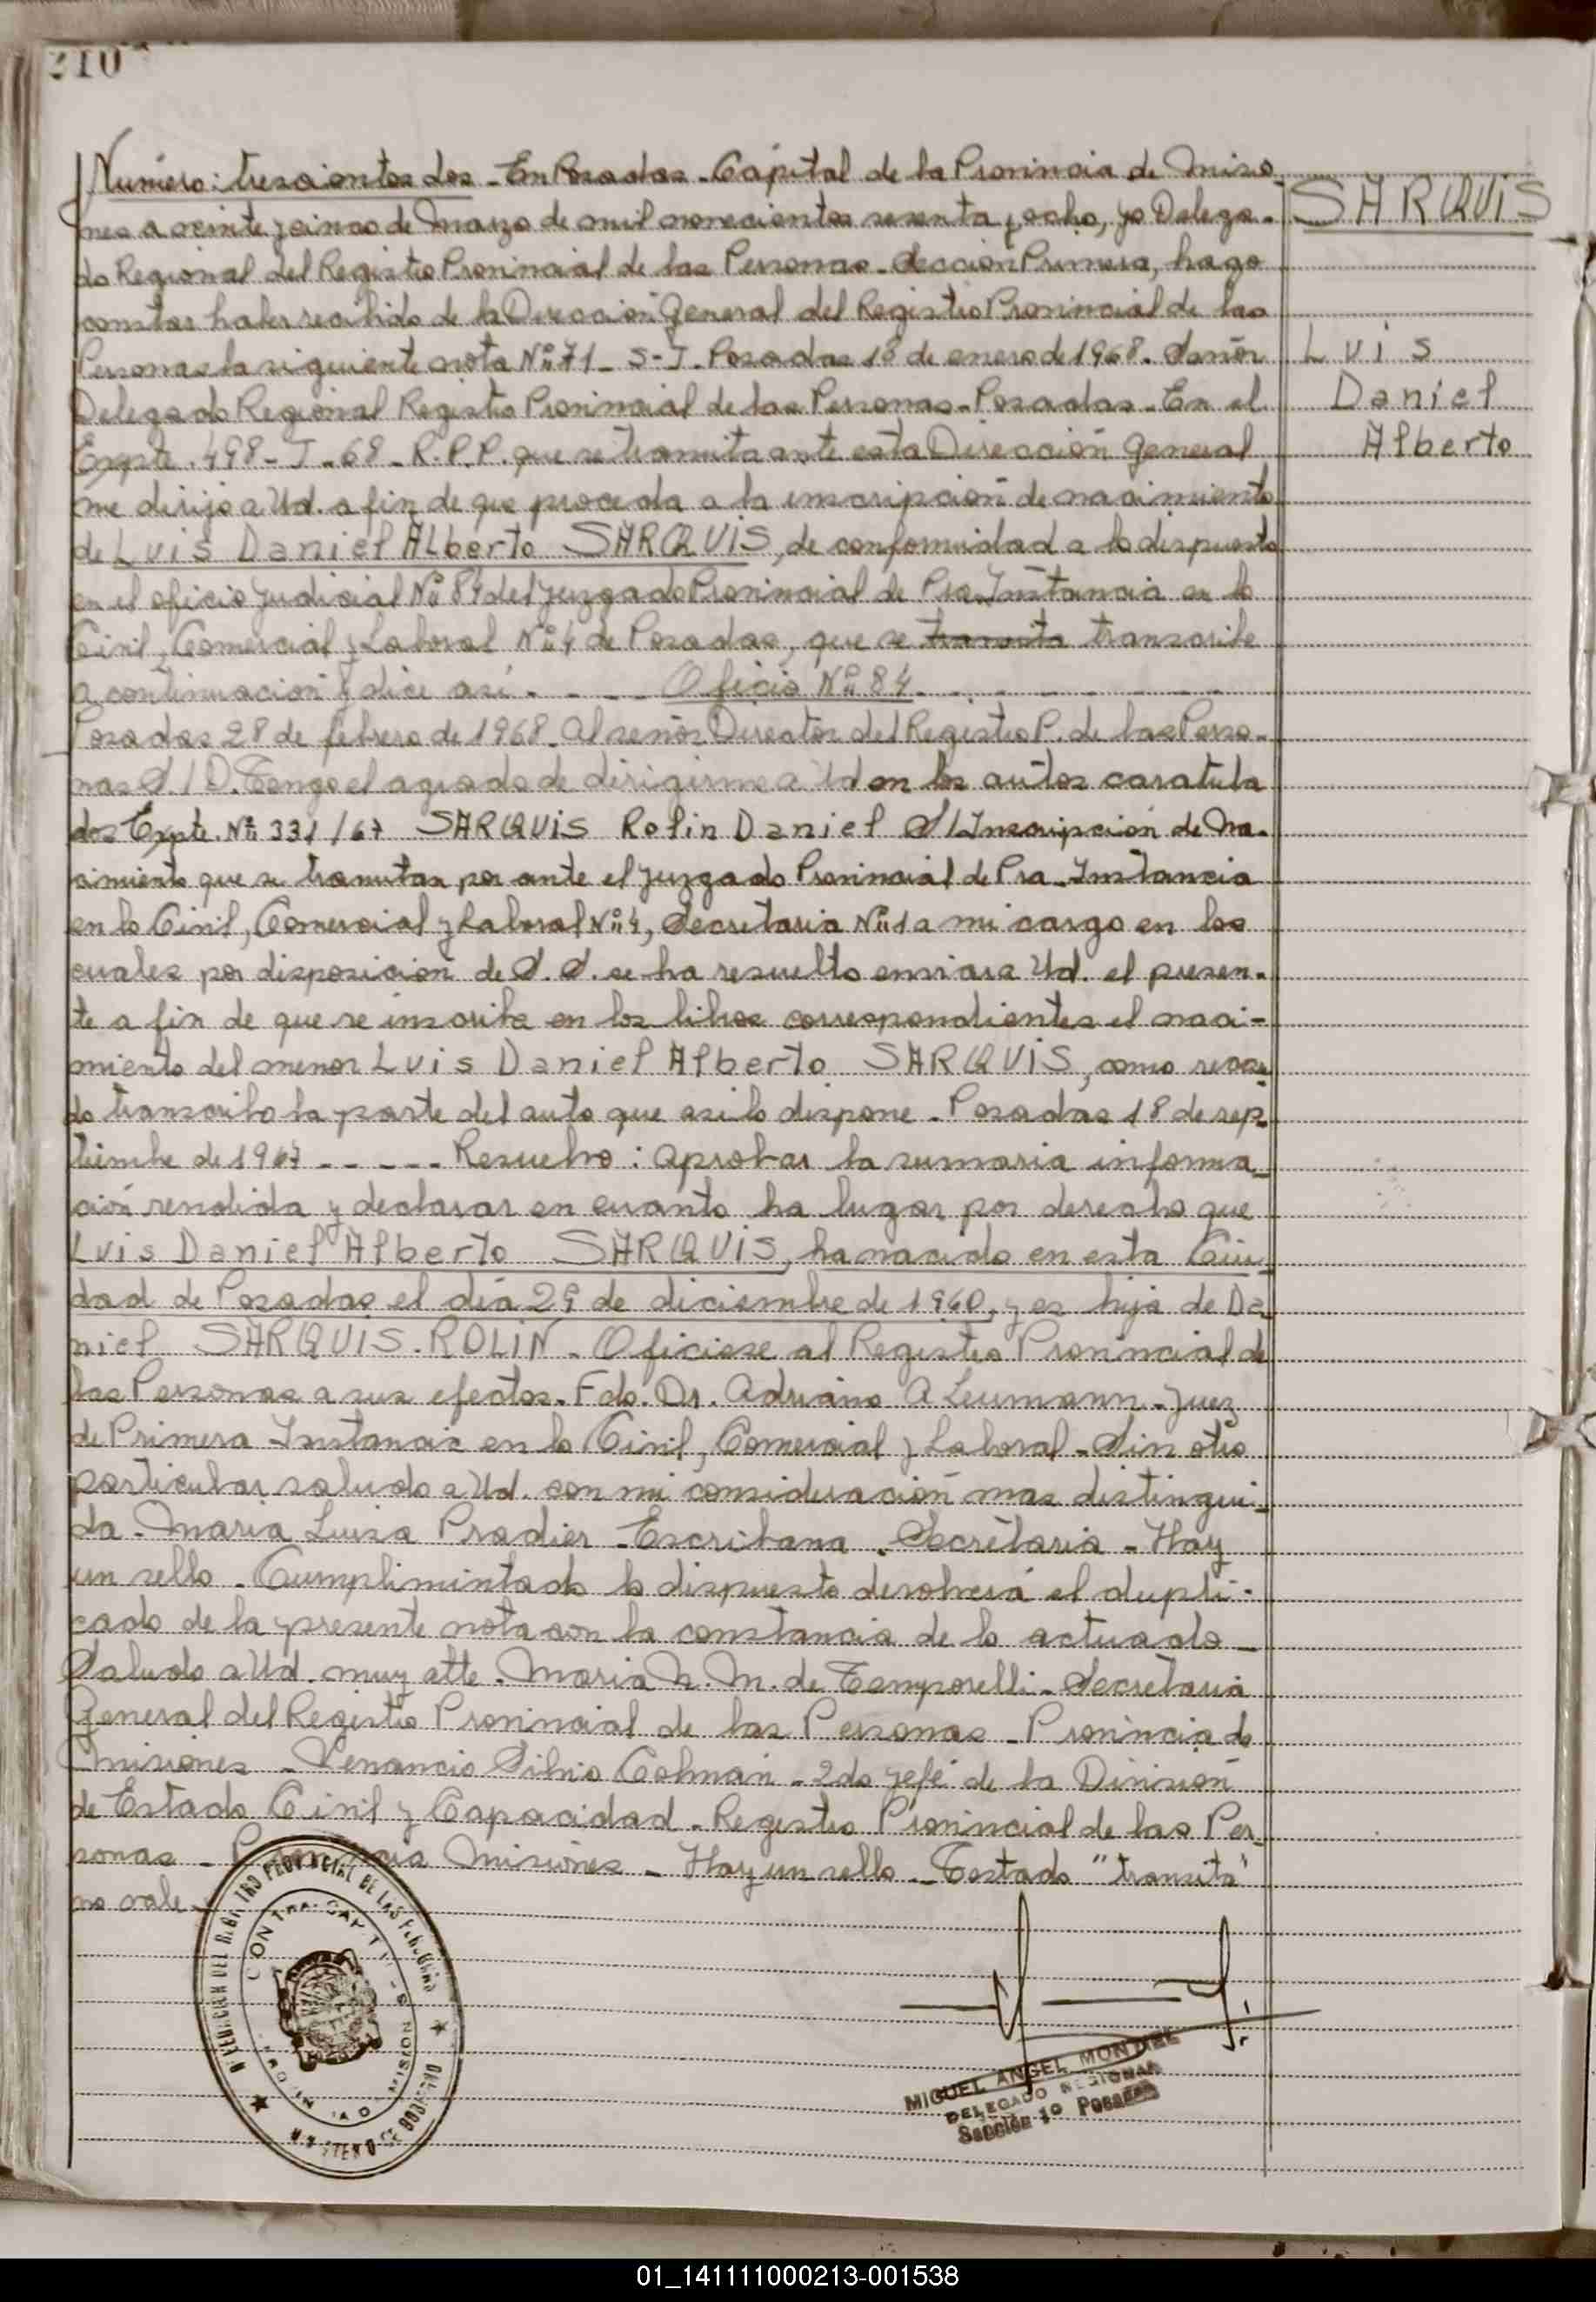 210
Número: trescientos dos - En Posadas - Cápital de la Provincia de Misio
nes a veinte y cinco de Marzo de mil novecientos sesenta y ocho, yo Delega-
do Regional del Registro Provincial de las Personas - Sección Primera, hago
constar haber recibido de la Dirección General del Registro Provincial de las
Personas la siguiente nota Nº 71 - S-J - Posadas 18 de enero de 1968. Señor
Delegado Regional Registro Provincial de las Personas - Posadas - En el
Expte. 498 - J - 68 - R.P.P. que se tramita ante esta Dirección General
me dirijo a Ud. a fin de que proceda a la inscripción de nacimiento
de Luis Daniel Alberto SARQUIS, de conformidad a lo dispuesto
en el oficio judicial Nº 84 del Juzgado Provincial de Pra. Instancia en lo
Civil, Comercial y Laboral Nº 4 de Posadas, que se transcribe
a continuación y dice así - - - - Oficio Nº 84 - - - - - -
Posadas 28 de febrero de 1968 - Al señor Director del Registro P. de las Perso-
nas S./D. Tengo el agrado de dirigirme a Ud en los autos caratula
dos Expte. Nº 331/67 SARQUIS Rolin Daniel S/Inscripción de Na-
cimiento que se tramitan por ante el Juzgado Provincial de Pra. Instancia
en lo Civil, Comercial y Laboral Nº 4, Secretaria Nº 1 a mi cargo en los
cuales por disposición de S. S. se ha resuelto enviar a Ud. el presen-
te a fin de que se inscriba en los libros correspondientes el naci-
miento del menor Luis Daniel Alberto SARQUIS, como recau
do transcribo la parte del auto que asi lo dispone - Posadas 18 de sep-
tiembre de 1967 - - - - - Resuelvo: Aprobar la sumaria informa-
ción rendida y declarar en cuanto ha lugar por derecho que
Luis Daniel Alberto SARQUIS, ha nacido en esta Ciu-
dad de Posadas el día 29 de diciembre de 1960, y es hijo de Da
niel SARQUIS - ROLIN - Oficiese al Registro Provincial de
las Personas a sus efectos - Fdo. Dr. Adriano A Leumann - Juez
de Primera Instancia en lo Civil, Comercial y Laboral - Sin otro
particular saludo a Ud. con mi consideración mas distingui-
da - Maria Luisa Pradier - Escribana - Secretaria - Hay
un sello - Cumplimintado lo dispuesto devolverá el dupli-
cado de la presente nota con la constancia de lo actuado -
Saludo a Ud. muy atte - Maria N. M. de Temporelli - Secretaria
General del Registro Provincial de las Personas - Provincia de
Misiones - Venancio Silvio Colman - 2do Jefe de la División
de Estado Civil y Capacidad - Registro Provincial de las Per-
sonas - Provincia Misiones - Hay un sello - Testado "transita"
no vale -
SARQUIS
Luis
Daniel
Alberto
MIGUEL ANGEL MONTIEL
DELEGADO REGIONAL
Sección 1º Posadas
01_141111000213-001538